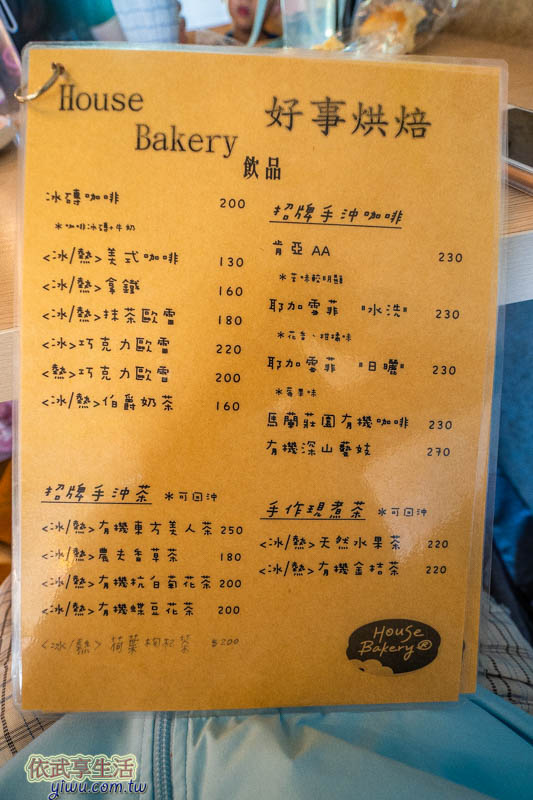 House
Bakery
好事烘焙
飲品
冰磚咖啡 200
*咖啡冰磚+牛奶
<冰/熱>美式咖啡 130
<冰/熱>拿鐵 160
<冰/熱>抹茶歐蕾 180
<冰>巧克力歐蕾 220
<熱>巧克力歐蕾 200
<冰/熱>伯爵奶茶 160
招牌手沖咖啡
肯亞AA 230
*苦味較明顯
耶加雪菲 "水洗" 230
*花香、柑橘味
耶加雪菲 "日曬" 230
*莓果味
馬蘭莊園有機咖啡 230
有機深山藝妓 270
招牌手沖茶 *可回沖
<冰/熱>有機東方美人茶 250
<冰/熱>農夫香草茶 180
<冰/熱>有機杭白菊花茶 200
<冰/熱>有機蝶豆花茶 200
<冰/熱>荷葉枸杞茶 $200
手作現煮茶 *可回沖
<冰/熱>天然水果茶 220
<冰/熱>有機金桔茶 220
House
Bakery®
依武享生活
yiwu.com.tw